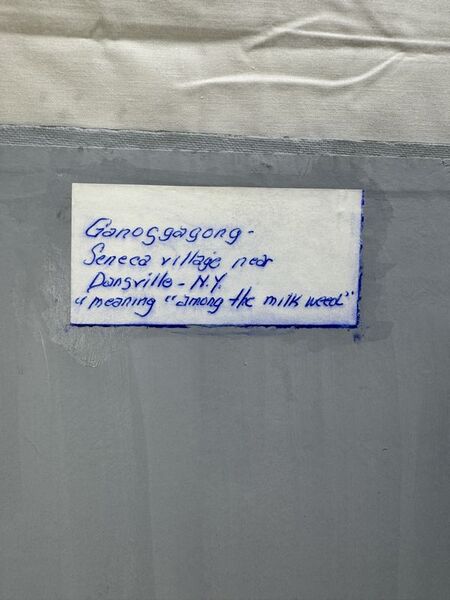 Ganosgagong -
Seneca village near
Dansville - N.Y.
" meaning "among the milk weed"